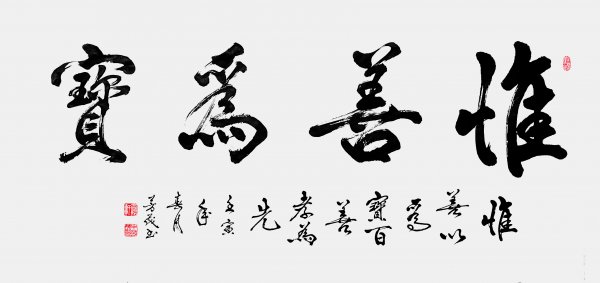 惟善爲寶
惟
善以
為
寶百
善
孝為
先
壬寅
年
春月
书